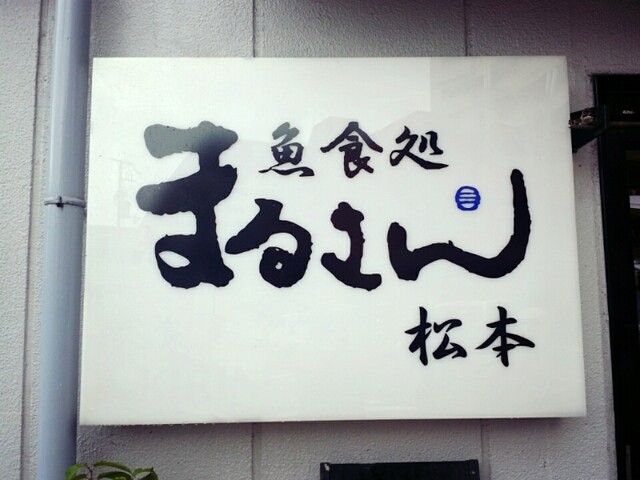 魚食処
まるさん
三
松本